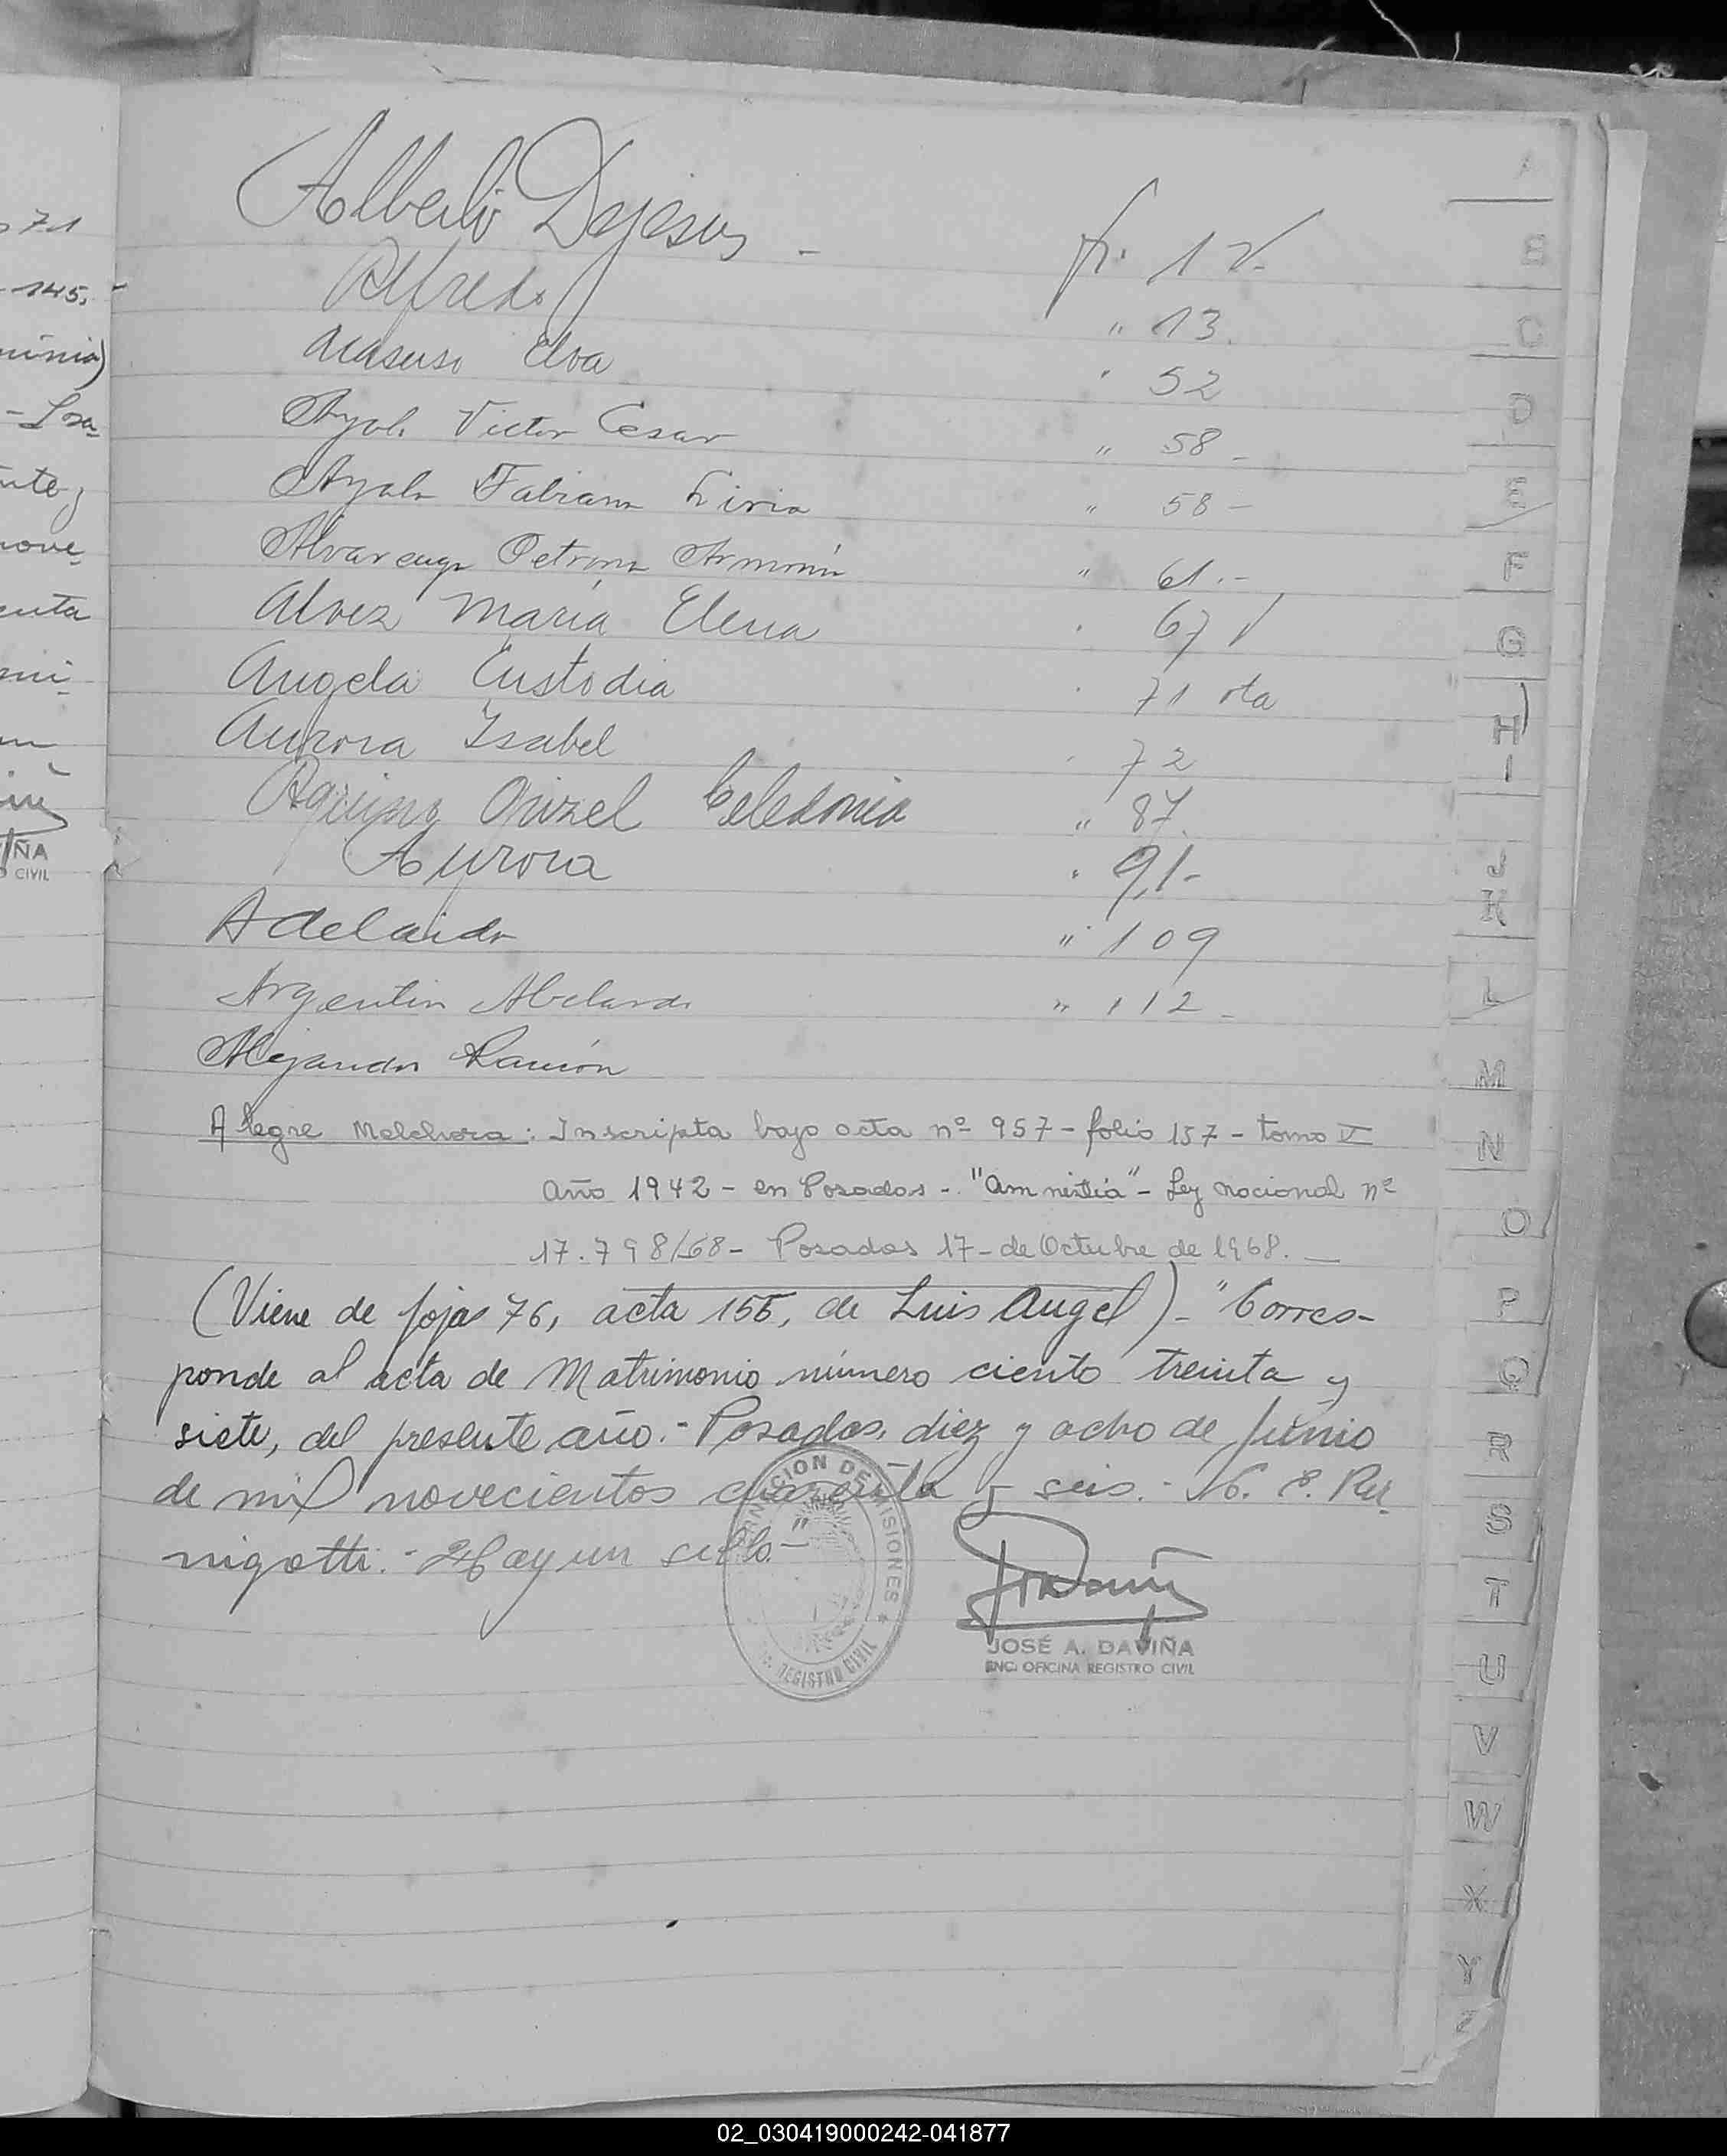 Alberto Dejesus - fs. 1 v.
Alfredo " 13.
Acasuso Elva " 52
Ayala Victor Cesar " 58 -
Ayala Fabiana Liria " 58 -
Alvarenga Petrona Armonia " 61.-
Alvez María Elena " 67 v
Angela Custodia " 71 vta
Aurora Isabel " 72
Aquino Celedonia " 87.
Aurora " 91-
Adelaida " 109
Argentin Abelardo " 112 -
Alejandro Ramón
Alegre Melchora: Inscripta bajo acta nº 957 - folio 157 - tomo V
año 1942 - en Posadas - "Amnistía" - Ley nacional nº
17.798/68 - Posadas 17 - de Octubre de 1968. -
(Viene de fojas 76, acta 155, de Luis Angel) - "Corres-
ponde al acta de Matrimonio número ciento treinta y
siete, del presente año. - Posadas, diez y ocho de junio
de mil novecientos cuarenta y seis. - N. E. Per
nigotti. - Hay un sello. - "
GOBERNACION DE MISIONES
REGISTRO CIVIL
JOSÉ A. DAVIÑA
ENC. OFICINA REGISTRO CIVIL
A
B
C
D
E
F
G
H
I
J
K
L
M
N
O
P
Q
R
S
T
U
V
W
X
Y
Z
71
145.
ninia)
nte y
nove-
enta
IÑA
CIVIL
02_030419000242-041877